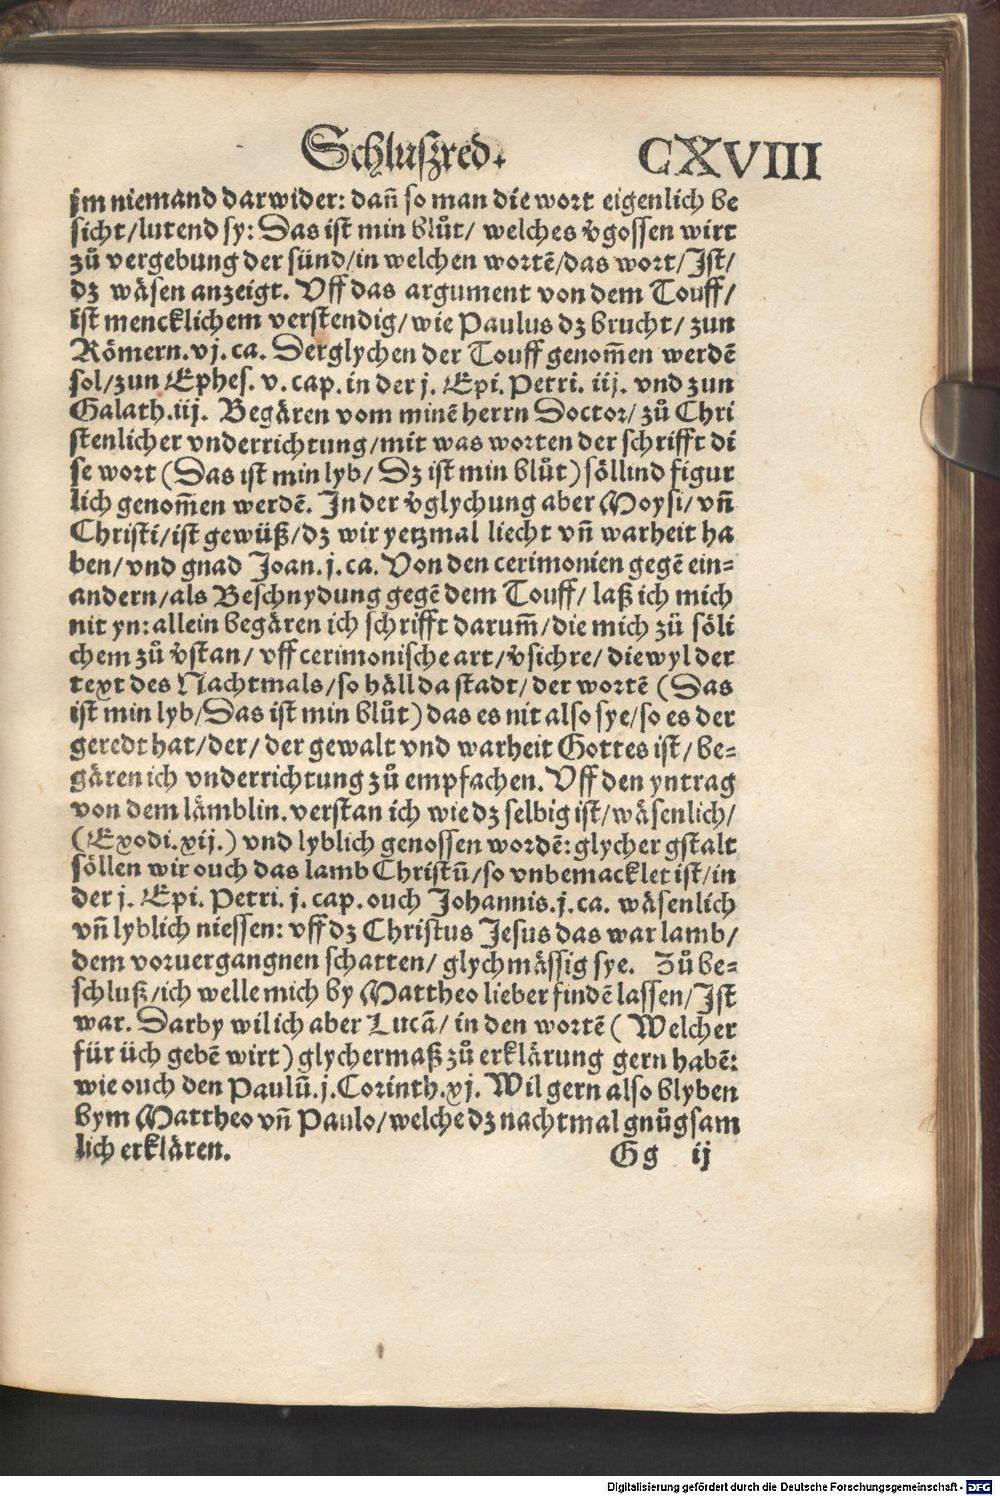 Schluszred. CXVIII
im niemand darwider: dañ so man die wort eigenlich be
sicht/lutend sy: Das ist min blůt/ welches v̈gossen wirt
zů vergebung der sünd/in welchen wortē/das wort/Ist/
dz wäsen anzeigt. Uff das argument von dem Touff/
ist mencklichem verstendig/wie Paulus dz brucht/ zun
Römern.vj.ca. Derglychen der Touff genom̄en werdē
sol/zun Ephes. v. cap. in der j. Epi. Petri. iij. vnd zun
Galath.iij. Begären vom minē herrn Doctor/ zů Chri
stenlicher vnderrichtung/mit was worten der schrifft di
se wort (Das ist min lyb/ Dz ist min blůt) söllind figur
lich genom̄en werdē. In der v̈glychung aber Moysi/ vñ
Christi/ist gewüß/dz wir yetzmal liecht vñ warheit ha
ben/vnd gnad Joan.j.ca. Von den cerimonien gegē ein⸗
andern/als Beschnydung gegē dem Touff/ laß ich mich
nit yn: allein begären ich schrifft darum̄/die mich zů söli
chem zů v̈stan/ vff cerimonische art/v̈sichre/ diewyl der
text des Nachtmals/so häll da stadt/ der wortē (Das
ist min lyb/Das ist min blůt) das es nit also sye/so es der
geredt hat/der/ der gewalt vnd warheit Gottes ist/ be⸗
gären ich vnderrichtung zů empfachen. Uff den yntrag
von dem lämblin. verstan ich wie dz selbig ist/wäsenlich/
(Exodi.xij.) vnd lyblich genossen wordē: glycher gstalt
söllen wir ouch das lamb Christū/so vnbemacklet ist/in
der j. Epi. Petri. j. cap. ouch Johannis.j.ca. wäsenlich
vñ lyblich niessen: vff dz Christus Jesus das war lamb/
dem voruergangnen schatten/ glychmässig sye. Zů be⸗
schluß/ich welle mich by Mattheo lieber findē lassen/Ist
war. Darby wil ich aber Lucā/ in den wortē ( Welcher
für üch gebē wirt) glychermaß zů erklärung gern habē:
wie ouch den Paulū.j.Corinth.xj. Wil gern also blyben
bym Mattheo vñ Paulo/welche dz nachtmal gnůgsam
lich erklären. Gg ij
Digitalisierung gefördert durch die Deutsche Forschungsgemeinschaft - DFG